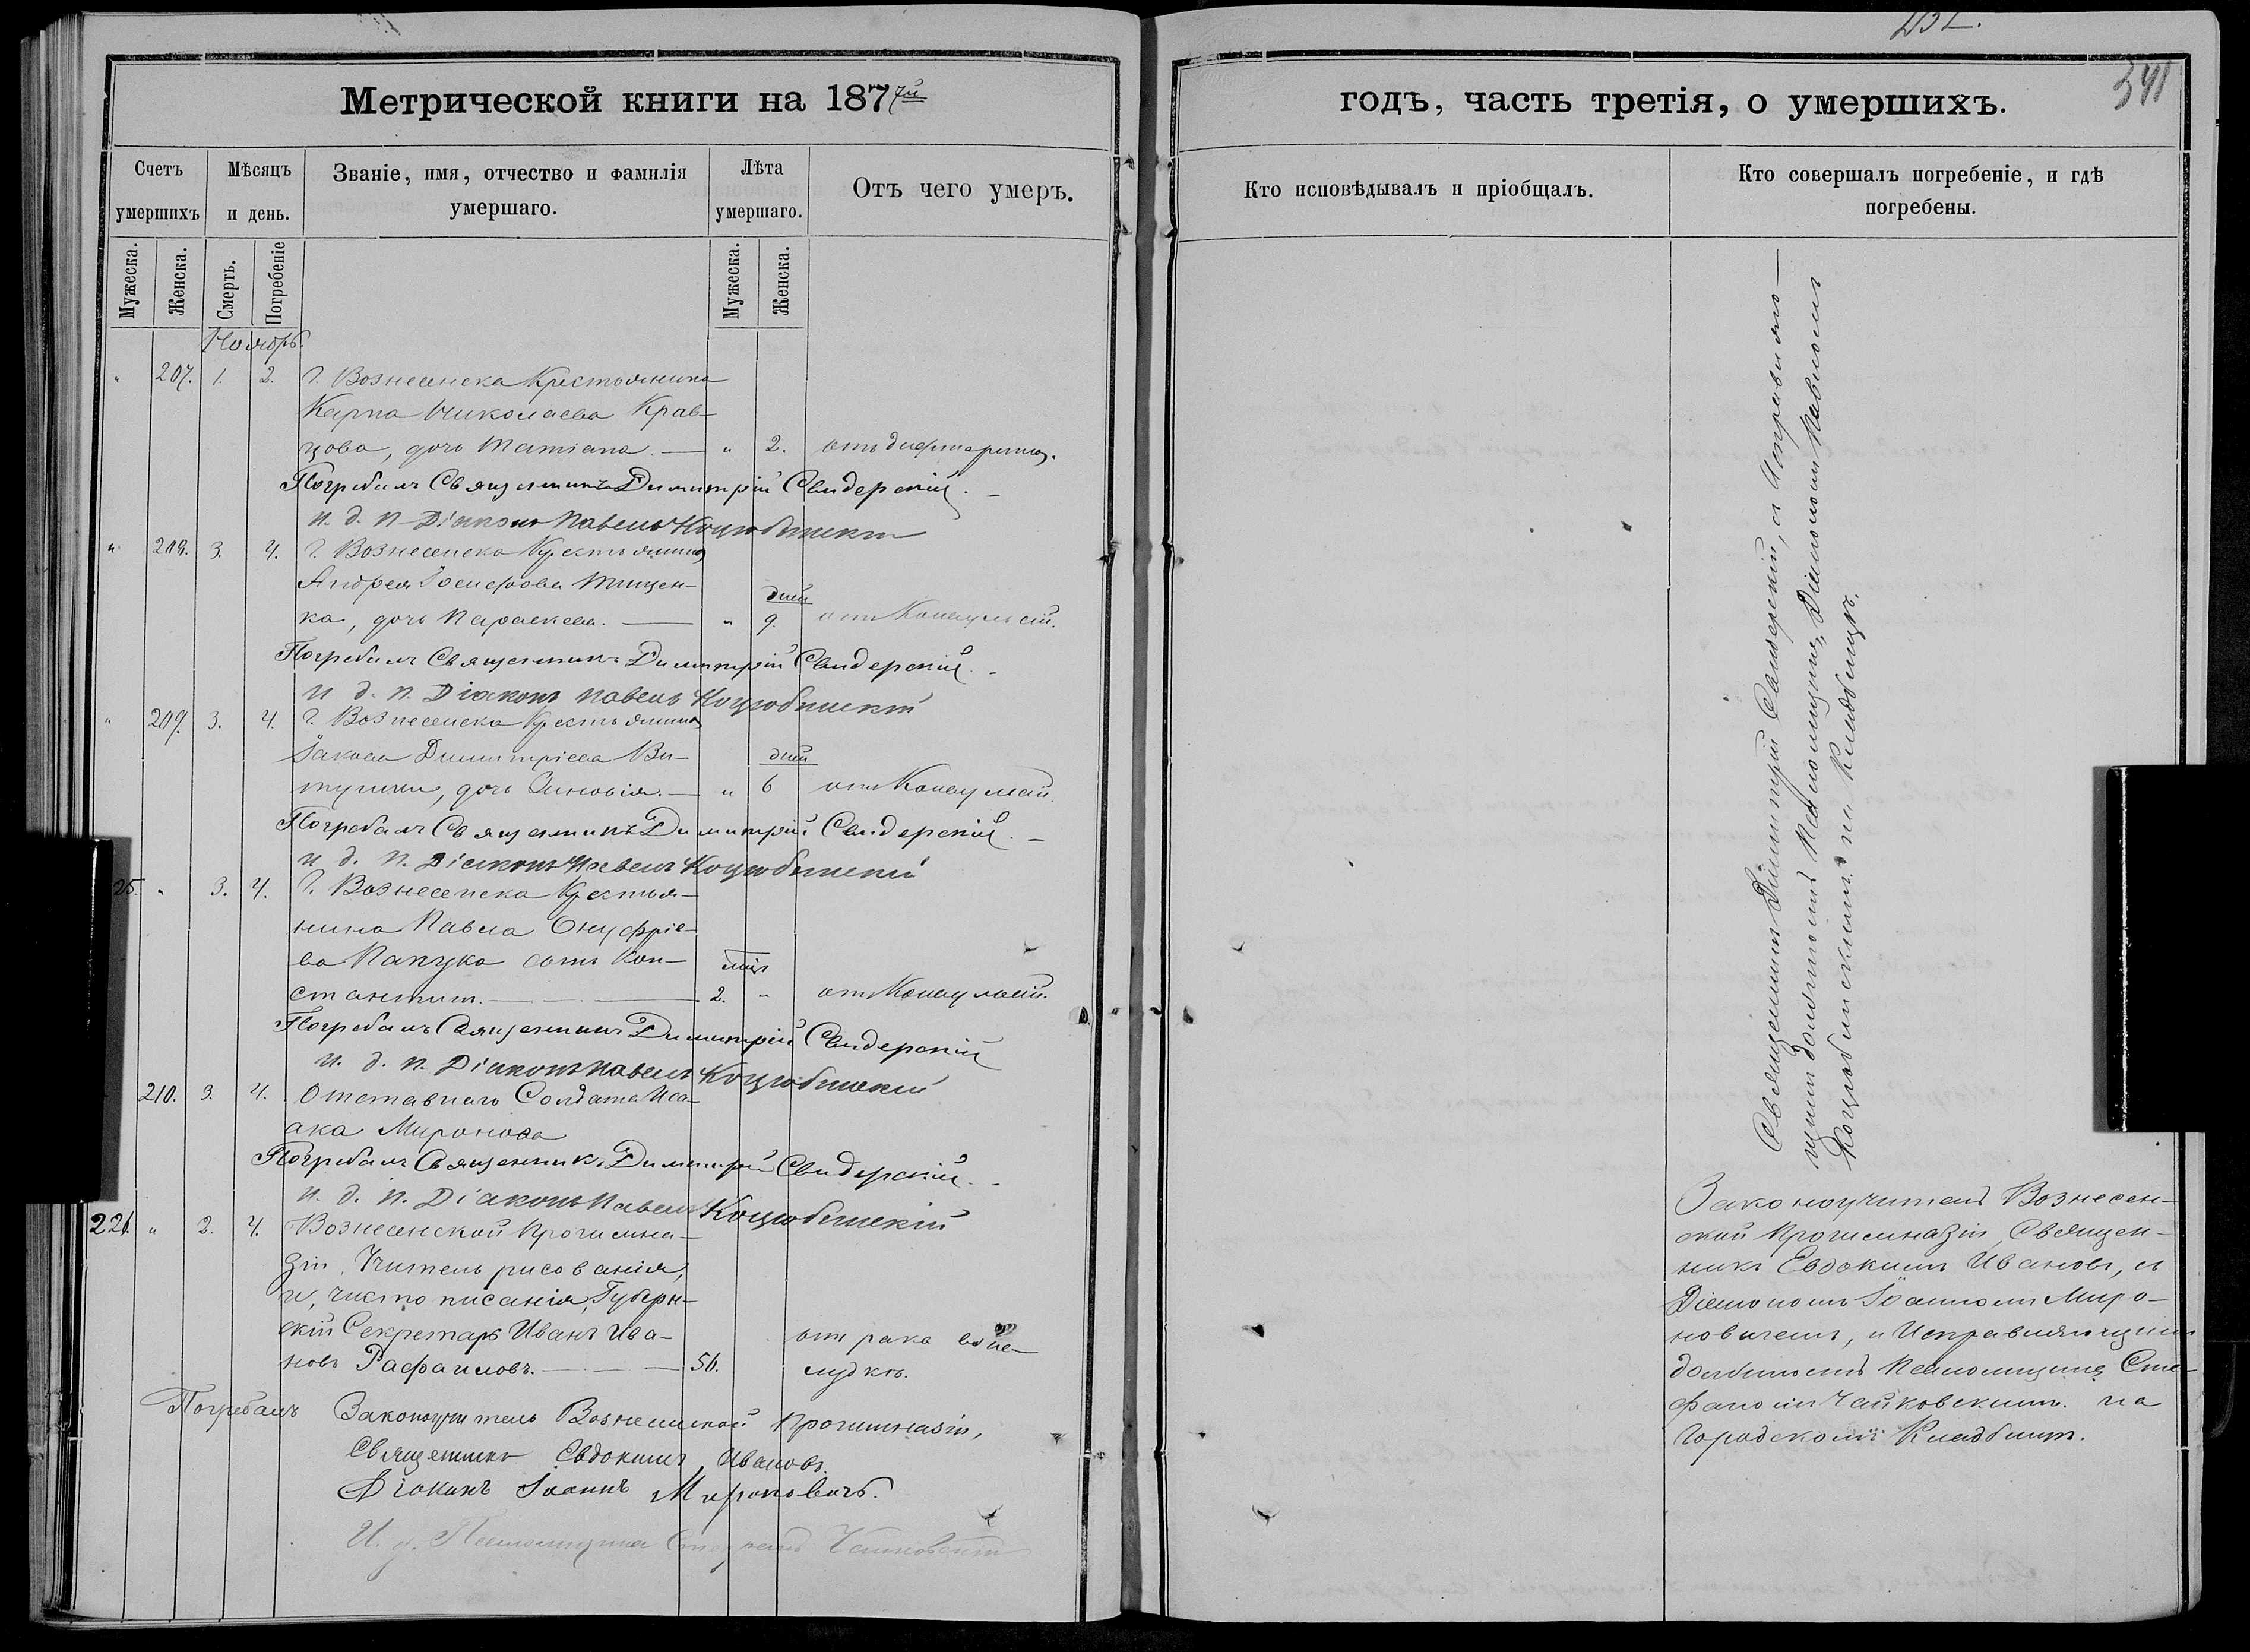 Метрической книги на 1877й
Счетъ умершихъ
Мѣсяцъ и день.
Званіе, имя, отчество и фамилія умершаго.
Лѣта умершаго.
Отъ чего умеръ.
Мужеска.
Женска.
Смерть.
Погребеніе
Мужеска.
Женска.
Ноябрь.
" 207. 1. 2. Г. Вознесенска Крестьянина
Карпа Николаева Крав-
цова, дочь Татіана. — " 2. отъ дифтерита.
Погребалъ Священникъ Димитрій Свидерскій. –
и. д. п. Діаконъ Павелъ Коцюбинскій
" 208. 3. 4. Г. Вознесенска Крестьянина
Андрея Іосифова Тищен-
дней
ка, дочь Параскева. — " 9. отъ Конвульсій.
Погребалъ Священникъ Димитрій Свидерскій. –
и д. п. Діаконъ Павелъ Коцюбинскій
" 209. 3. 4. Г. Вознесенска Крестьянина
Іакова Димитріева Ви-
дней
тушки, дочь Зиновія. — " 6 отъ Конвульсій.
Погребалъ Священникъ Димитрій Свидерскій. –
и д. п. Діаконъ Павелъ Коцюбинскій
" 3. 4. Г. Вознесенска Крестья-
нина Павла Онуфріе-
ва сынъ Кон-
мѣс.
стантинъ. — 2. " отъ Конвульсій.
Погребалъ Священникъ Димитрій Свидерскій
и. д. п. Діаконъ Павелъ Коцюбинскій
210. 3. 4. Отставнаго Солдата Иса-
ака Миронова
Погребалъ Священникъ Димитрій Свидерскій. –
и. д. п. Діаконъ Павелъ Коцюбинскій
221. " 2. 4. Вознесенской Прогимна-
зіи, Учитель рисованія,
и, чистописанія, Губерн-
скій Секретарь Иванъ Ива-
отъ рака въ же-
новъ Рафаиловъ. — 56.
лудкѣ.
Погребалъ Законоучитель Вознесенской Прогимназіи,
Священникъ Евдокимъ Ивановъ.
Діаконъ Іоаннъ Мироновичъ.
И. д. Псаломщика Стефанъ Чайковскій
годъ, часть третія, о умершихъ.
341
Кто исповѣдывалъ и пріобщалъ.
Кто совершалъ погребеніе, и гдѣ погребены.
Священникъ Димитрій Свидерскій, съ Исправляю-
щимъ должность Псаломщика, Діакономъ Павломъ
Коцюбинскимъ. на Кладбищѣ.
Законоучитель Вознесен-
ской Прогимназіи, Священ-
никъ Евдокимъ Ивановъ, съ
Діакономъ Іоанномъ Миро-
новичемъ, и Исправляющимъ
должность Псаломщика Сте-
фаномъ Чайковскимъ. на
Городскомъ Кладбищѣ.